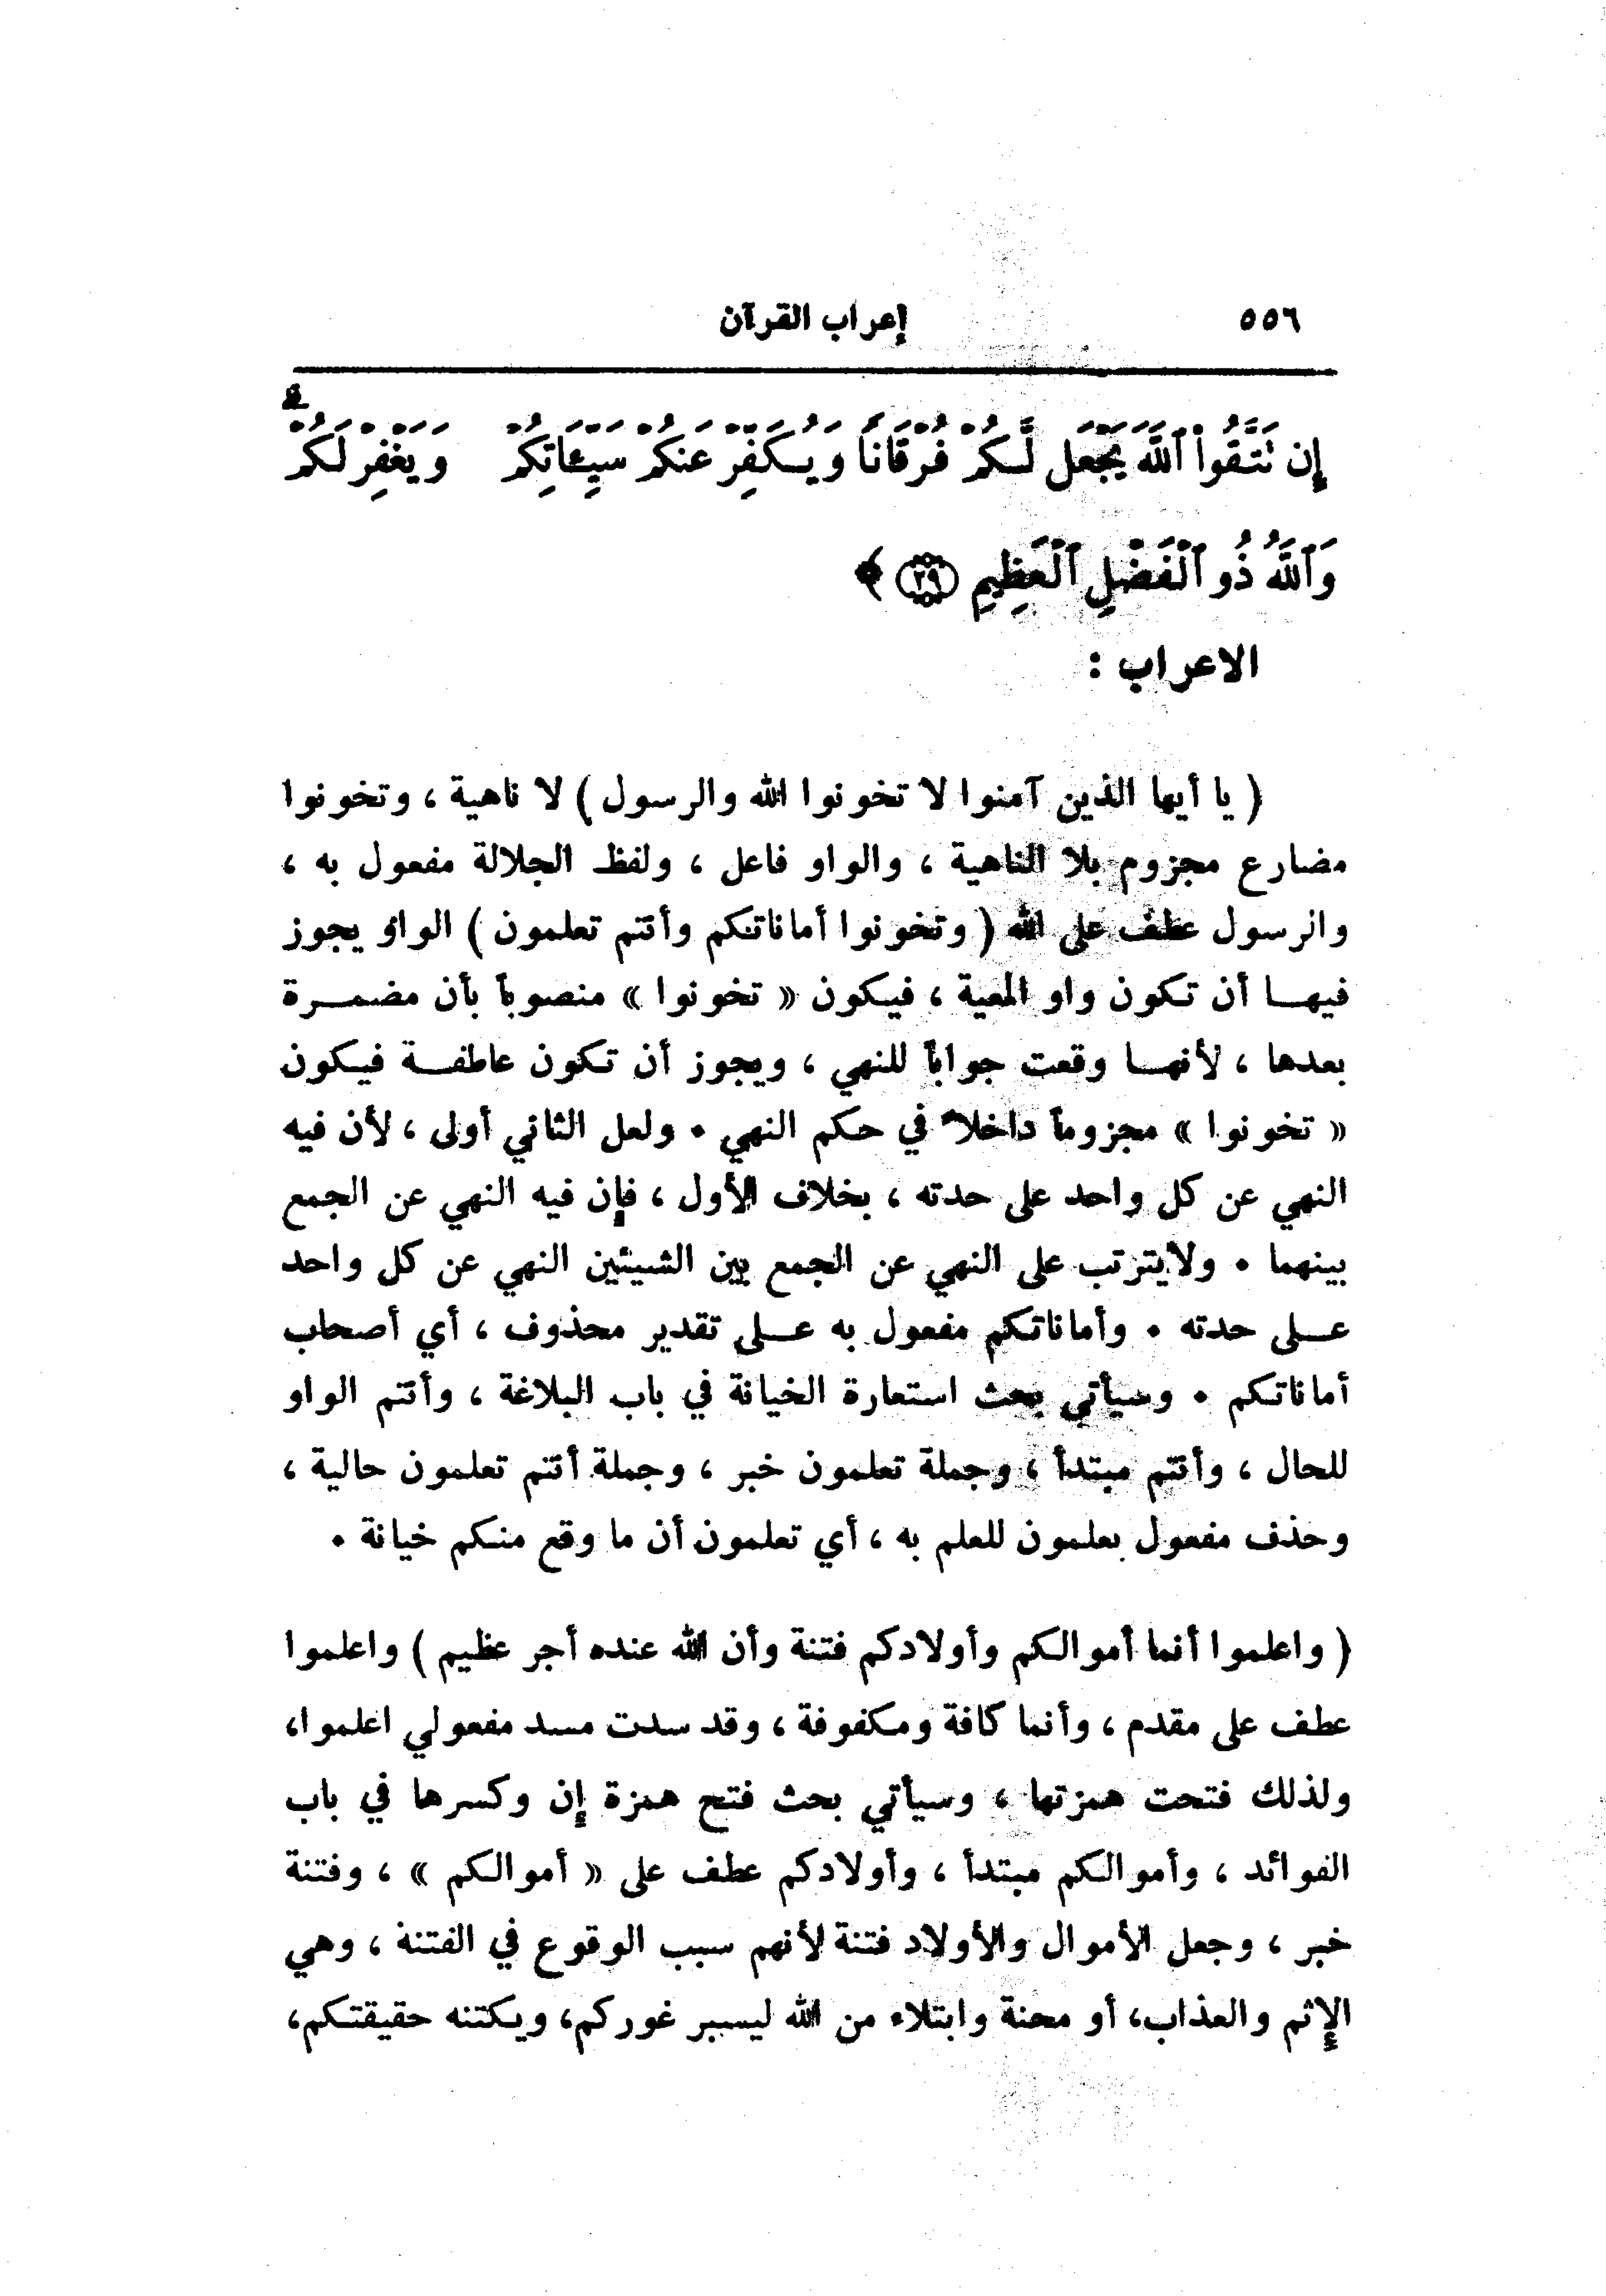 ٥٥٦ إعراب القرآن
إِن تَتَّقُواْ ٱللَّهَ يَجْعَل لَّكُمْ فُرْقَانًا وَيُكَفِّرْ عَنكُمْ سَيِّـَٔاتِكُمْ وَيَغْفِرْ لَكُمْ ۗ
وَٱللَّهُ ذُو ٱلْفَضْلِ ٱلْعَظِيمِ ﴿٢٩﴾ ﴾
الاعراب :
( يا أيها الذين آمنوا لا تخونوا الله والرسول ) لا ناهية ، وتخونوا
مضارع مجزوم بلا الناهية ، والواو فاعل ، ولفظ الجلالة مفعول به ،
والرسول عطف على الله ( وتخونوا أماناتكم وأنتم تعلمون ) الواو يجوز
فيهـا أن تكون واو المعية ، فيكون « تخونوا » منصوباً بأن مضمـرة
بعدها ، لأنهـا وقعت جواباً للنهي ، ويجوز أن تكون عاطفـة فيكون
« تخونوا » مجزوماً داخلاً في حكم النهي . ولعل الثاني أولى ، لأن فيه
النهي عن كل واحد على حدته ، بخلاف الأول ، فإن فيه النهي عن الجمع
بينهما . ولايترتب على النهي عن الجمع بين الشيئين النهي عن كل واحد
عـلى حدته . وأماناتكم مفعول به عـلى تقدير محذوف ، أي أصحاب
أماناتكم . وسيأتي بحث استعارة الخيانة في باب البلاغة ، وأنتم الواو
للحال ، وأنتم مبتدأ ، وجملة تعلمون خبر ، وجملة أنتم تعلمون حالية ،
وحذف مفعول يعلمون للعلم به ، أي تعلمون أن ما وقع منكم خيانة .
( واعلموا أنما أموالكم وأولادكم فتنة وأن الله عنده أجر عظيم ) واعلموا
عطف على مقدم ، وأنما كافة ومكفوفة ، وقد سدت مسد مفعولي اعلموا،
ولذلك فتحت همزتها ، وسيأتي بحث فتح همزة إن وكسرها في باب
الفوائد ، وأموالكم مبتدأ ، وأولادكم عطف على « أموالكم » ، وفتنة
خبر ، وجعل الأموال والأولاد فتنة لأنهم سبب الوقوع في الفتنة ، وهي
الإثم والعذاب، أو محنة وابتلاء من الله ليسبر غوركم، ويكتنه حقيقتكم،